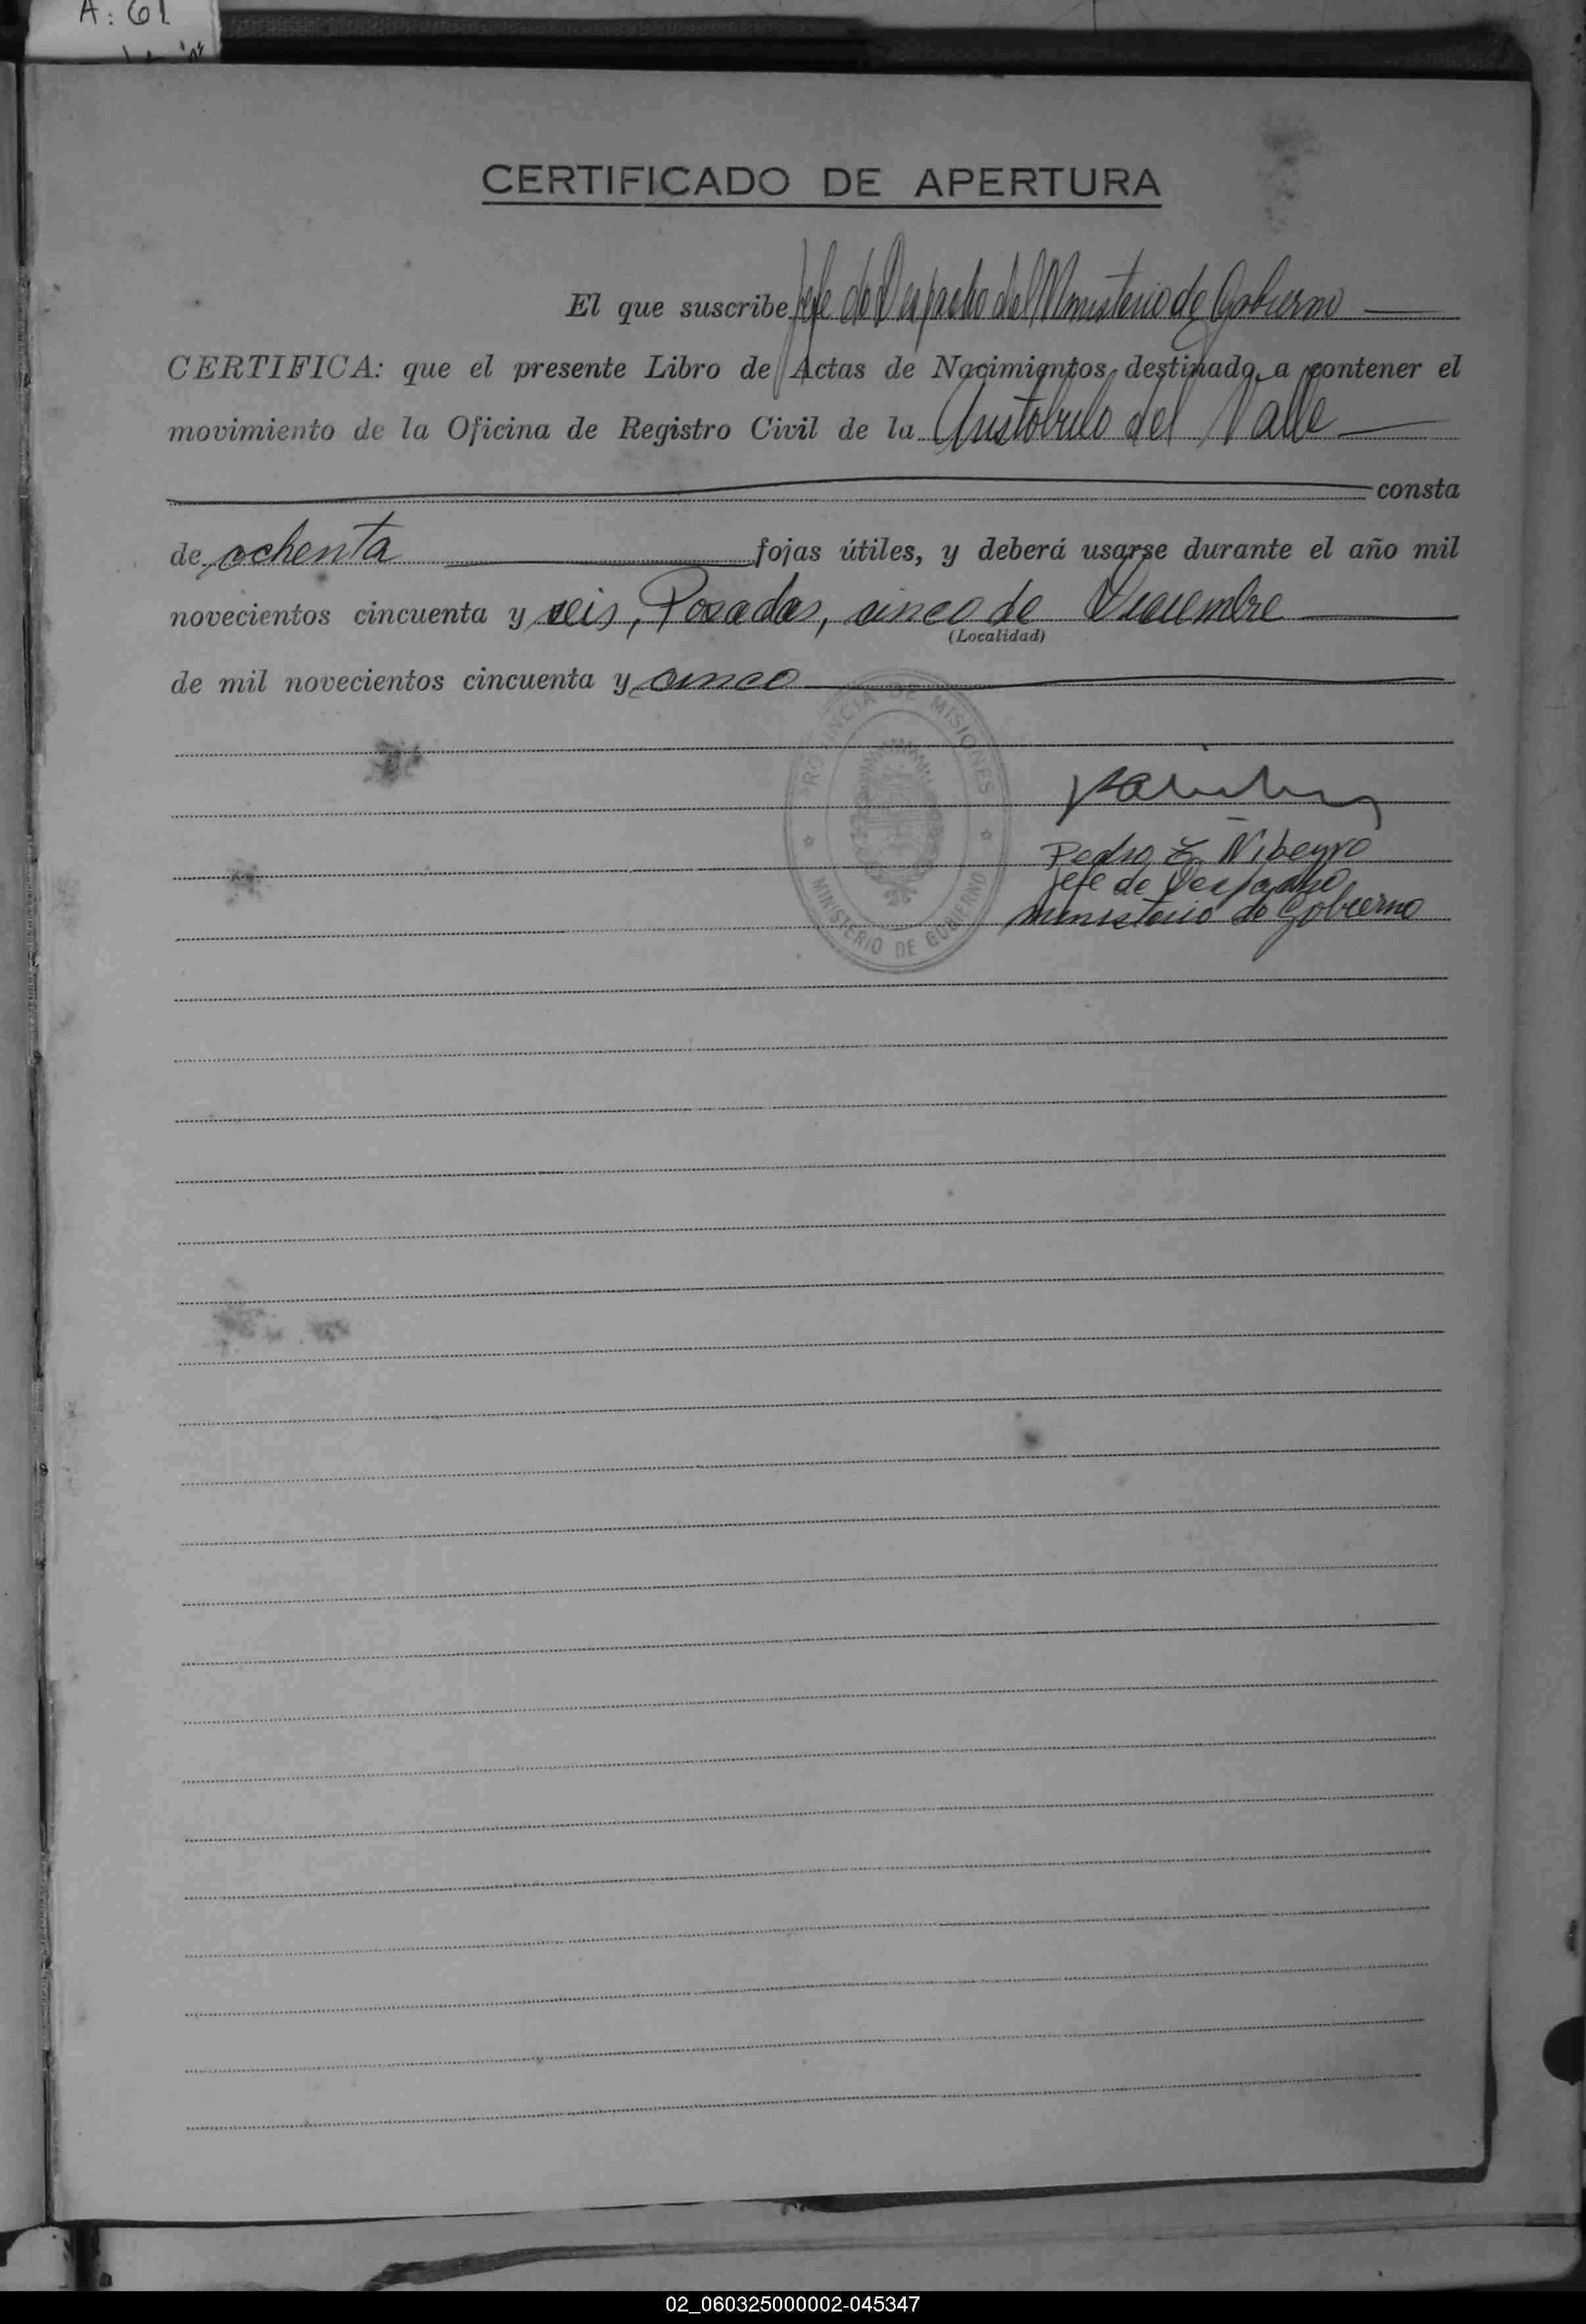 A: 61
CERTIFICADO DE APERTURA
El que suscribe Jefe de Despacho del Ministerio de Gobierno
CERTIFICA: que el presente Libro de Actas de Nacimientos, destinado, a contener el
movimiento de la Oficina de Registro Civil de la Aristobulo del Valle
consta
de ochenta fojas útiles, y deberá usarse durante el año mil
novecientos cincuenta y seis, Posadas, cinco de Diciembre
(Localidad)
de mil novecientos cincuenta y cinco
PROVINCIA DE MISIONES
MINISTERIO DE GOBIERNO
Pedro E. Nibeyro
Jefe de Despacho
Ministerio de Gobierno
02_060325000002-045347